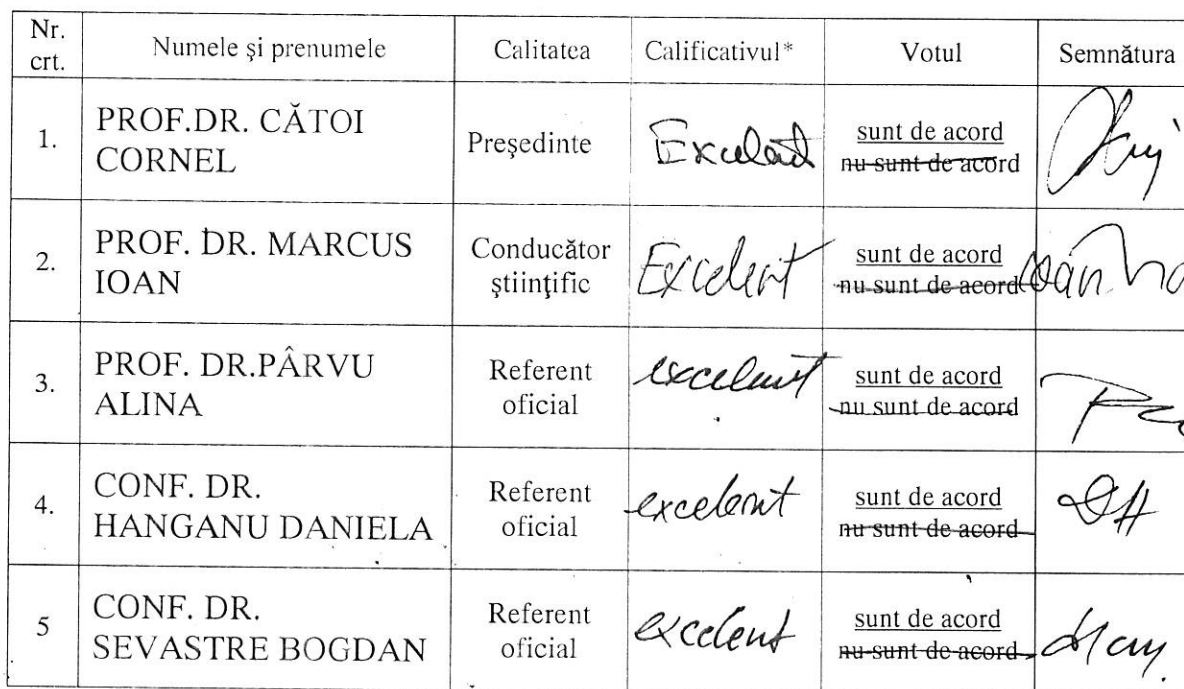 Nr. crt. Numele şi prenumele Calitatea Calificativul* Votul Semnătura
1. PROF.DR. CĂTOI CORNEL Preşedinte Excelent sunt de acord nu sunt de acord
2. PROF. DR. MARCUS IOAN Conducător ştiinţific Excelent sunt de acord nu sunt de acord
3. PROF. DR.PÂRVU ALINA Referent oficial excelent sunt de acord nu sunt de acord
4. CONF. DR. HANGANU DANIELA Referent oficial excelent sunt de acord nu sunt de acord
5 CONF. DR. SEVASTRE BOGDAN Referent oficial excelent sunt de acord nu sunt de acord